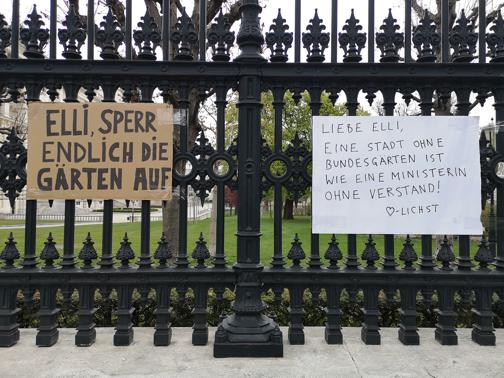 ELLI, SPERR
ENDLICH DIE
GÄRTEN AUF
LIEBE ELLI,
EINE STADT OHNE
BUNDESGARTEN IST
WIE EINE MINISTERIN
OHNE VERSTAND!
♡-LICHST